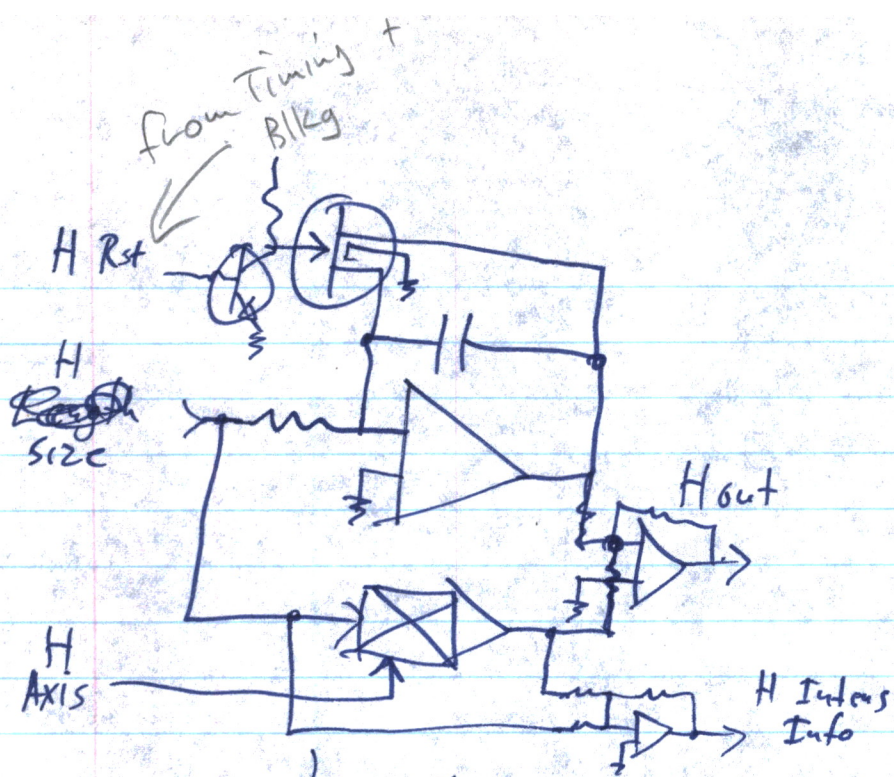 from Timing +
Blkg
H Rst
H
Size
H out
H
Axis
H Intens
Info